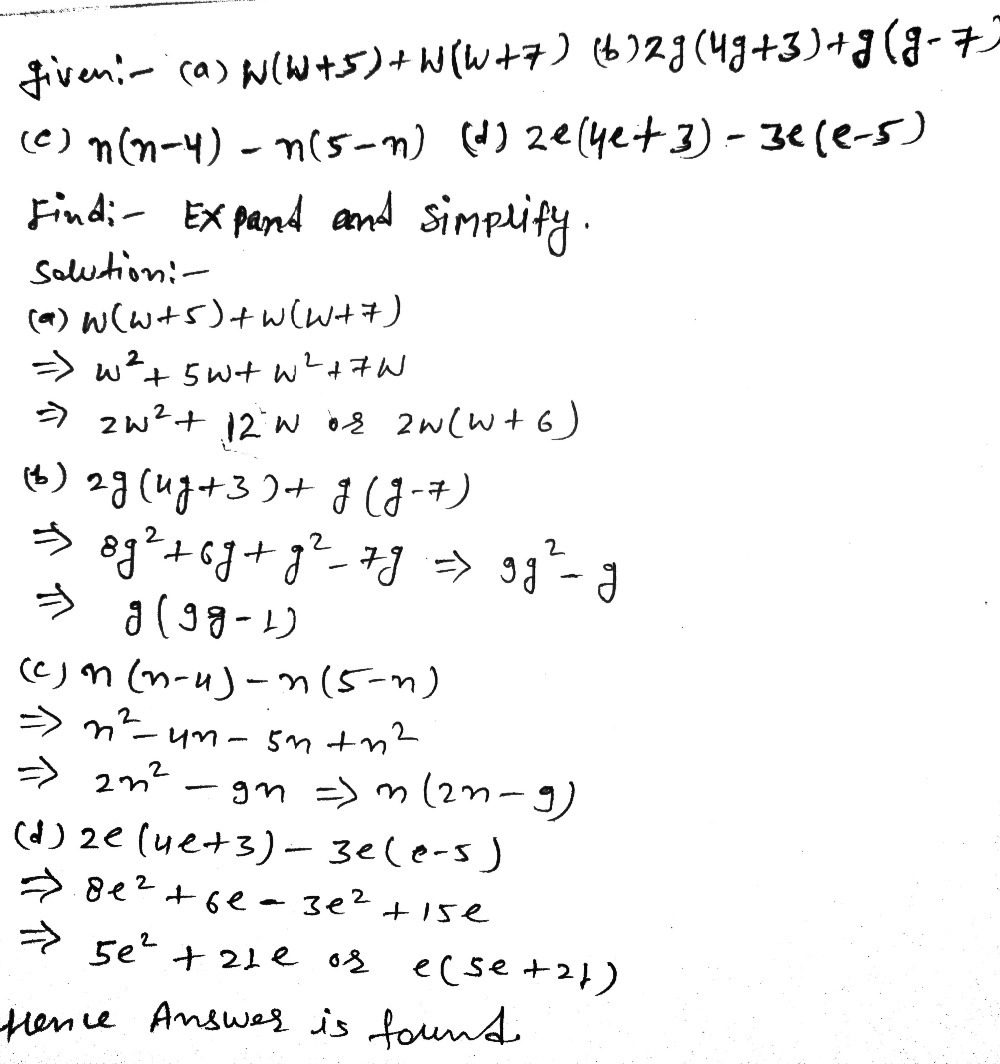 given:- (a) w(w+5)+w(w+7) (b) 2g(4g+3)+g(g-7)
(c) n(n-4) - n(5-n) (d) 2e(4e+3) - 3e(e-5)
Find:- Expand and simplify.
Solution:-
(a) w(w+5)+w(w+7)
⇒ w²+5w+w²+7w
⇒ 2w²+12w or 2w(w+6)
(b) 2g(4g+3)+g(g-7)
⇒ 8g²+6g+g²-7g ⇒ 9g²-g
⇒ g(9g-1)
(c) n(n-4)-n(5-n)
⇒ n²-4n-5n+n²
⇒ 2n²-9n ⇒ n(2n-9)
(d) 2e(4e+3)-3e(e-5)
⇒ 8e²+6e-3e²+15e
⇒ 5e²+21e or e(5e+21)
Hence Answer is found